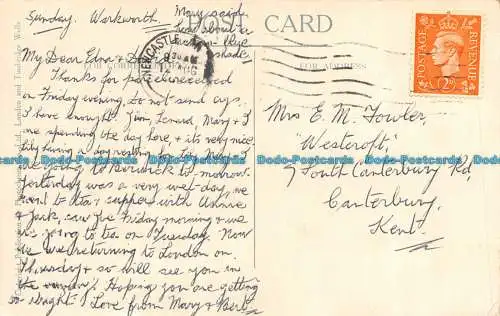 Sunday. Warkworth.
Mary said
how about a
shade.
POST CARD
FOR ADDRESS
NEWCASTLE
POSTAGE
REVENUE
2D
My Dear Edna &
Thanks for parcel received
on Friday evening. Do not send cups.
I have enough. Jim, Lenard, Mary & I
are spending the day here, & it's very nice
having a day
going to Berwick to morrow.
Yesterday was a very wet day, we
went to tea & supper with Annie
& Jack, saw Eve Friday morning & we
are going to tea on Tuesday. Now
we are returning to London on
Thursday & so will see you in
the evening. Hoping you are getting
so alright. Love from Mary & Bert.
Mrs E. M. Fowler,
"Westcroft",
7 South Canterbury Rd,
Canterbury,
Kent.
Ltd., London and Tunbridge Wells
Dodo-Postcards Dodo-Postcards Dodo-Postcards Dodo-Postcards Dodo-Postcards